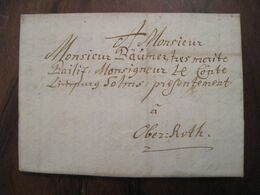 A Monsieur
Monsieur Bäumer tres merite
Bailif, Monsigneur le Conte
Limpurg Solms, presentement
à
Ober-Roth.